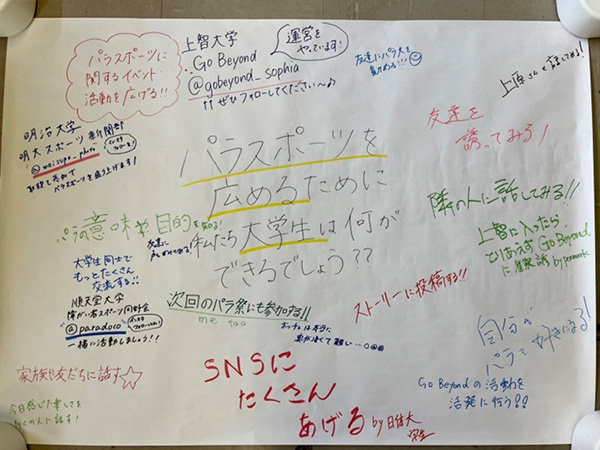 パラスポーツに
関するイベント
活動を広げる!!
上智大学
Go Beyond
@gobeyond_sophia
↑↑ぜひフォローしてください〜♪
運営を
やっています!
友達にパラ大を
勧める!!!
上原さんと話してみる!
明治大学
明大スポーツ新聞部
@meisupo_photo
取材を含めて
パラスポーツを盛り上げます!
友達を
誘ってみる!
パラスポーツを
広めるために
私たち大学生は何が
できるでしょう??
隣の人に話してみる!!
パラの意味や目的を知る!
上智に入ったら
とりあえず Go Beyond
大学生同士で
もっとたくさん
交流する!!
順天堂大学
障がい者スポーツ同好会
@paradoco
一緒に活動しましょう!!
次回のパラ祭にも参加する!!
me too
ストーリーに投稿する!!
自分が
パラを好きになる!
家族や友だちに話す☆
今日感じた楽しさを
多くの人に話す!
SNSに
たくさん
あげる by 日体大
学生
Go Beyondの活動を
活発に行う!!